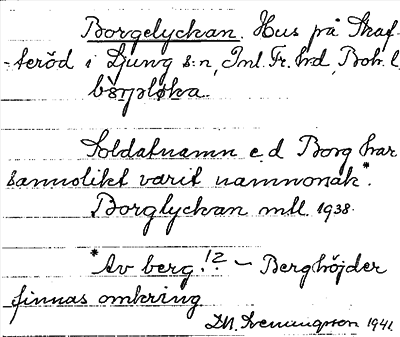 Borgelyckan. Hus på Skaf-
teröd i Ljung s:n, Inl. Fr. hd, Boh. l.
Soldatnamn e. d Borg har
sannolikt varit namnorsak*.
Borglyckan m.ll. 1938.
*Av berg!? – Berghöjder
finnas omkring
1941